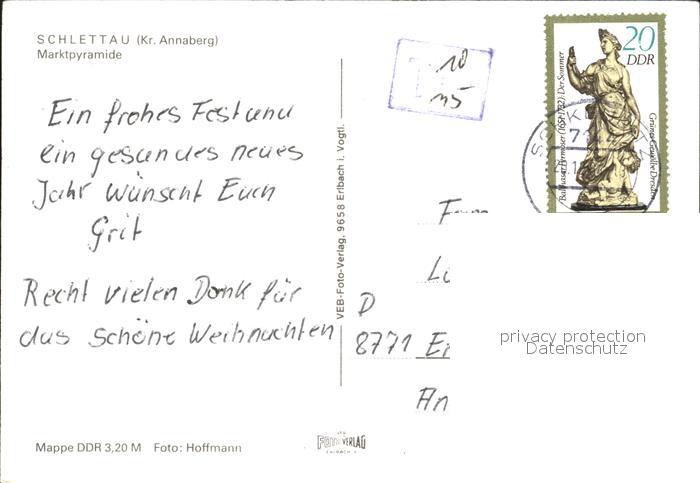 SCHLETTAU (Kr. Annaberg)
Marktpyramide
Ein frohes Fest und
ein gesundes neues
Jahr wünscht Euch
Grit
Recht vielen Dank für
das schöne Weihnachten
Mappe DDR 3,20 M Foto: Hoffmann
VEB-Foto-Verlag, 9658 Erlbach i. Vogtl.
FOTO VERLAG
T 10
20
DDR
Balthasar Permoser (1651-1732): Der Sommer
Grünes Gewölbe Dresden
D
8771
An
privacy protection
Datenschutz